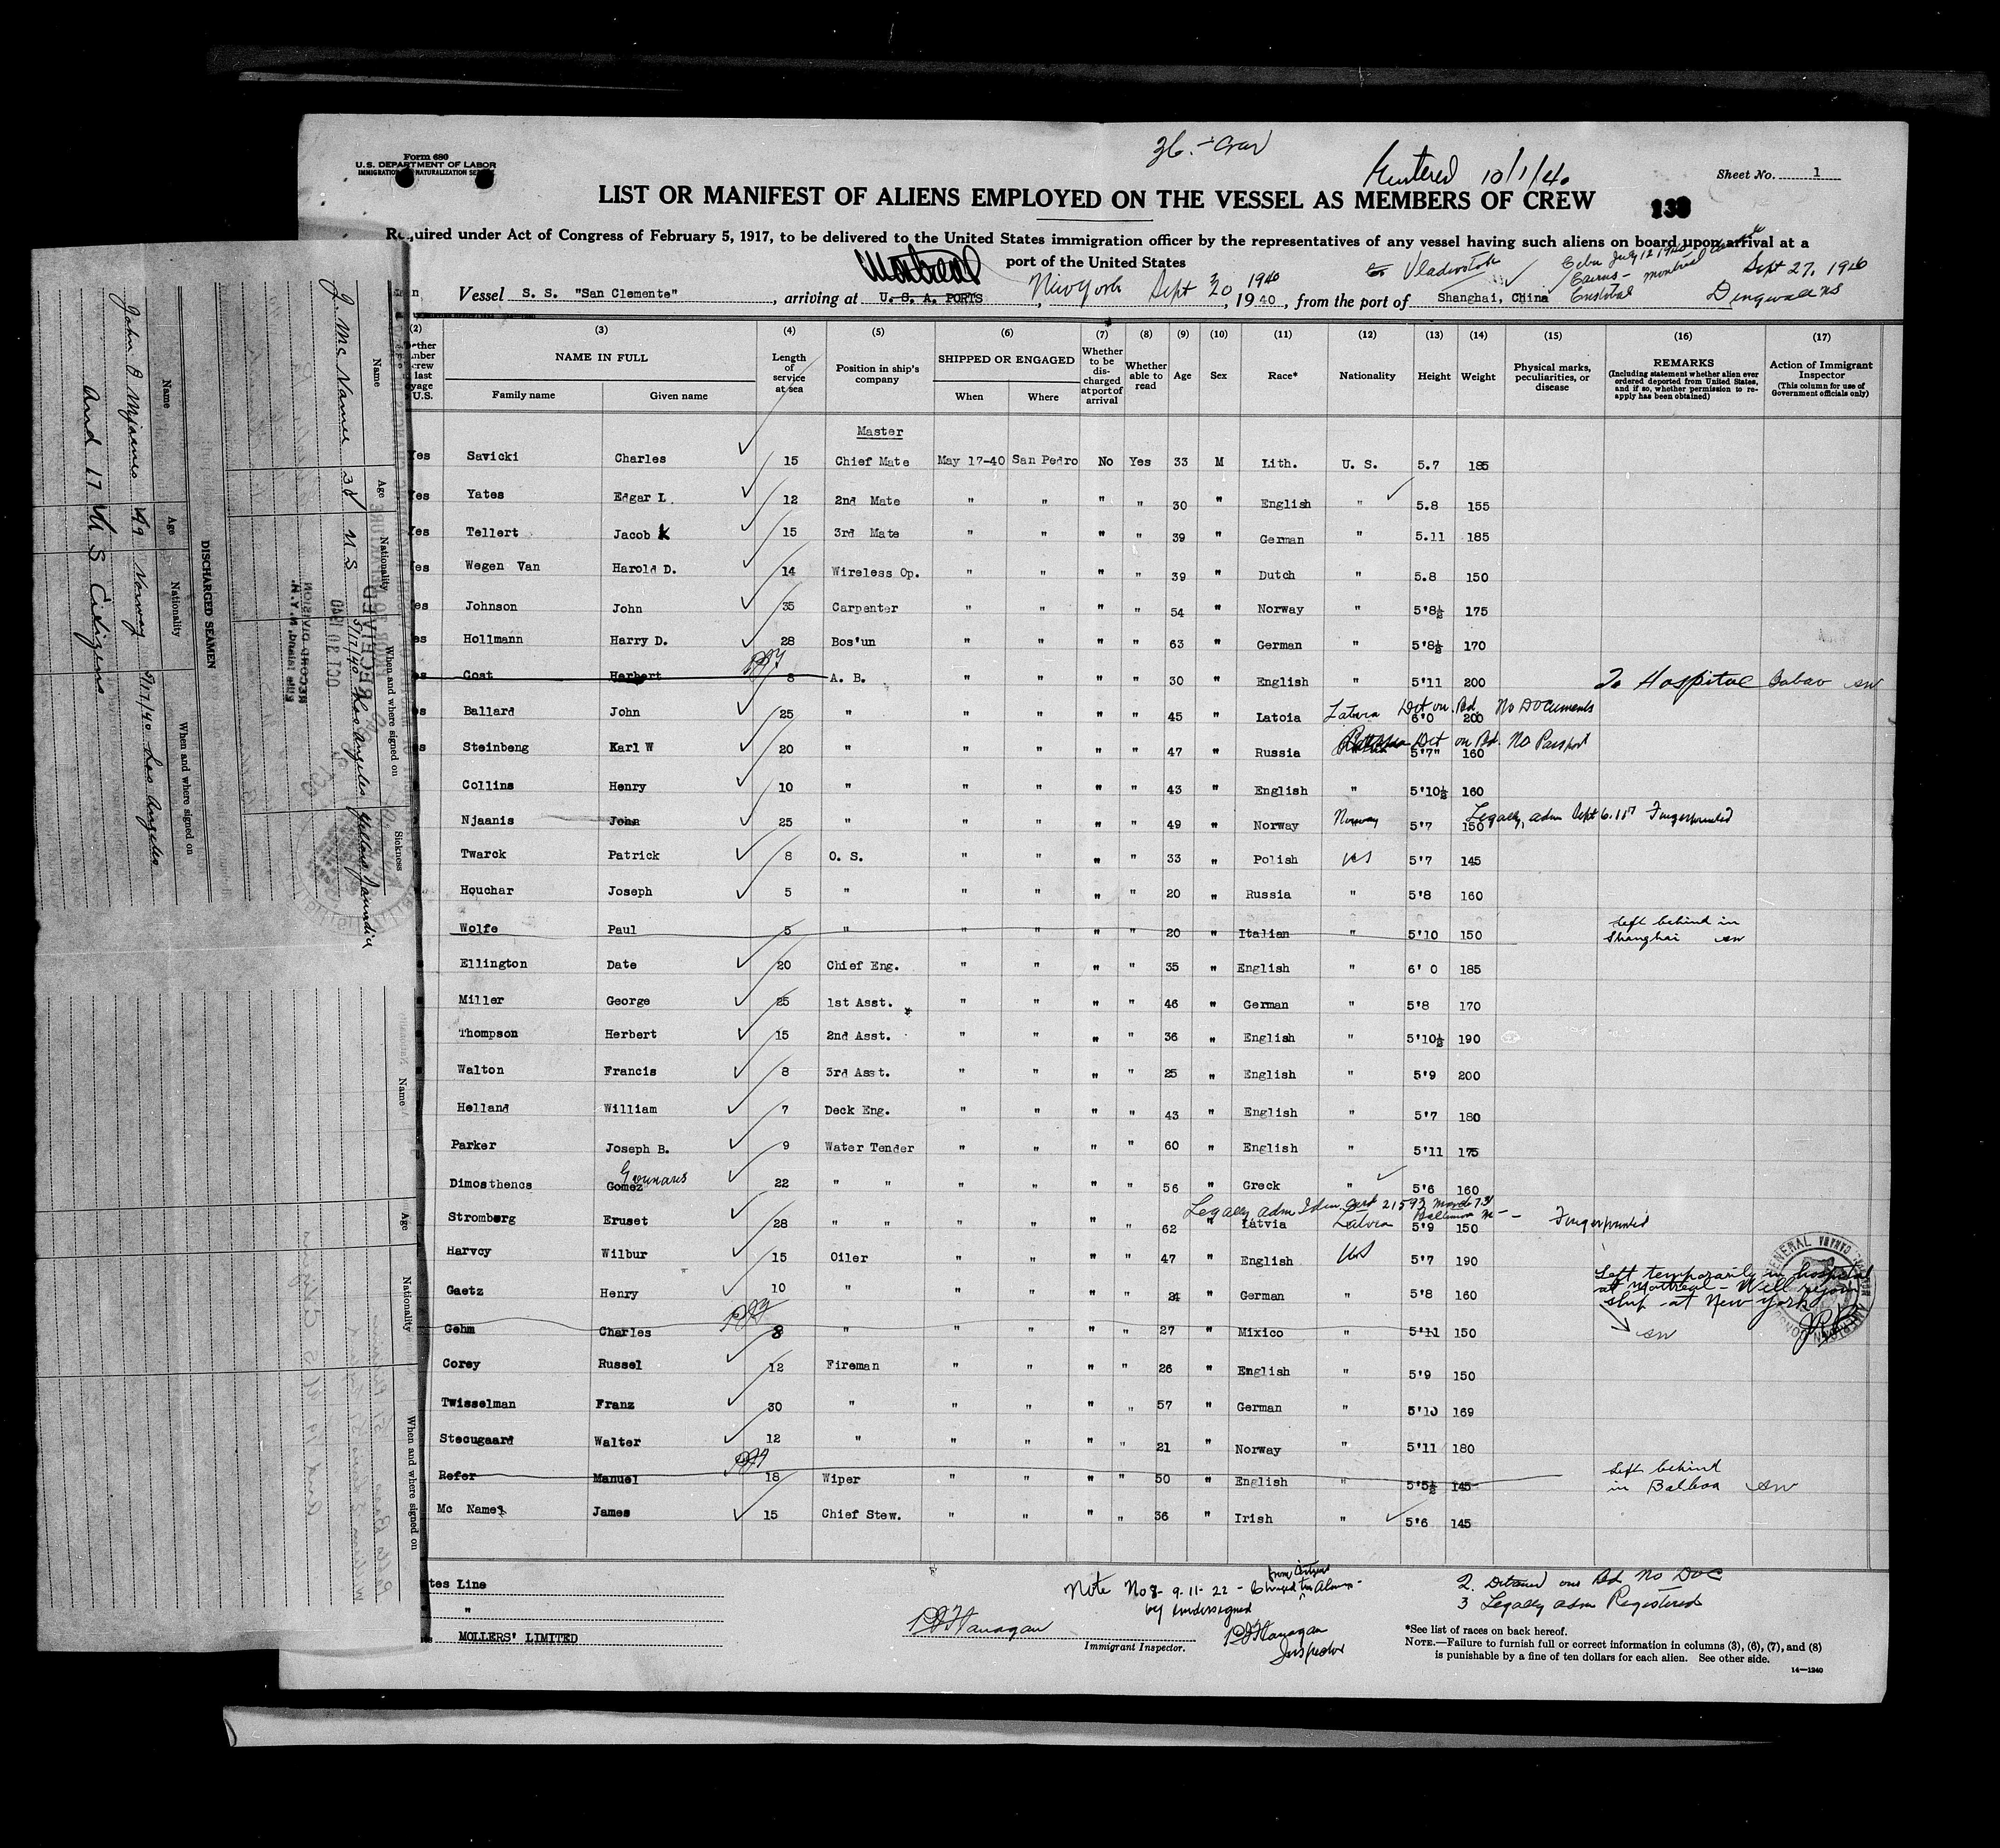 36. - Crew
Form 680
U.S. DEPARTMENT OF LABOR
IMMIGRATION NATURALIZATION
Entered 10/1/40
Sheet No. 1
LIST OR MANIFEST OF ALIENS EMPLOYED ON THE VESSEL AS MEMBERS OF CREW
138
Required under Act of Congress of February 5, 1917, to be delivered to the United States immigration officer by the representatives of any vessel having such aliens on board upon arrival at a
port of the United States
Montreal New York Sept 30 1940 to Vladivostok Cebu July 12 1940 Cairns - Montreal Cristobal Sept 27, 1940 Dingwall NS
Vessel S. S. "San Clemente", arriving at U. S. A. PORTS, 1940, from the port of Shanghai, China
(2) (3) (4) (5) (6) (7) (8) (9) (10) (11) (12) (13) (14) (15) (16) (17)
NAME IN FULL
Family name Given name
Length of service at sea
Position in ship's company
SHIPPED OR ENGAGED
When Where
Whether to be discharged at port of arrival
Whether able to read
Age Sex Race* Nationality Height Weight
Physical marks, peculiarities, or disease
REMARKS
(Including statement whether alien ever ordered deported from United States, and if so, whether permission to reapply has been obtained)
Action of Immigrant Inspector
(This column for use of Government officials only)
Master
Yes Savicki Charles 15 Chief Mate May 17-40 San Pedro No Yes 33 M Lith. U. S. 5.7 185
Yes Yates Edgar L 12 2nd Mate " " " " 30 " English " 5.8 155
Yes Tellert Jacob K 15 3rd Mate " " " " 39 " German " 5.11 185
Yes Wegen Van Harold D. 14 Wireless Op. " " " " 39 " Dutch " 5.8 150
Johnson John 35 Carpenter " " " " 54 " Norway " 5'8½ 175
Hollmann Harry D. 28 Bos'un " " " " 63 " German " 5'8½ 170
Cost Herbert 8 A. B. " " " " 30 " English " 5'11 200 To Hospital
Ballard John 25 " " " " " 45 " Latoia Latvia 6'0 200 Det on Bd. No DOCuments
Steinbeng Karl W 20 " " " " " 47 " Russia 5'7" 160 Det on Bd. No Passport
Collins Henry 10 " " " " " 43 " English " 5'10½ 160
Njaanis John 25 " " " " " 49 " Norway Norway 5'7 150 Legally adm Sept 6. Fingerprinted
Twarck Patrick 8 O. S. " " " " 33 " Polish US 5'7 145
Houchar Joseph 5 " " " " " 20 " Russia " 5'8 160
Wolfe Paul 5 " " " " " 20 " Italian " 5'10 150 Left behind in Shanghai
Ellington Date 20 Chief Eng. " " " " 35 " English " 6' 0 185
Miller George 25 1st Asst. " " " " 46 " German " 5'8 170
Thompson Herbert 15 2nd Asst. " " " " 36 " English " 5'10½ 190
Walton Francis 8 3rd Asst. " " " " 25 " English " 5'9 200
Helland William 7 Deck Eng. " " " " 43 " English " 5'7 180
Parker Joseph B. 9 Water Tender " " " " 60 " English " 5'11 175
Dimosthencs Gomez Gounaris 22 " " " " " " 56 " Greek " 5'6 160
Stromberg Eruset 28 " " " " " " 62 " Latvia Latvia 5'9 150 Legally adm Iden. Card Baltimore Fingerprinted
Harvey Wilbur 15 Oiler " " " " 47 " English US 5'7 190
Gaetz Henry 10 " " " " " 24 " German " 5'8 160 Left temporarily in hospital at Montreal - Will rejoin ship at New York
Gehm Charles 8 " " " " " 27 " Mixico " 5'11 150
Corey Russel 12 Fireman " " " " 26 " English " 5'9 150
Twisselman Franz 30 " " " " " 57 " German " 5'10 169
Stecugaard Walter 12 " " " " " 21 " Norway " 5'11 180
Refer Manuel 18 Wiper " " " " 50 " English " 5'5½ 145 Left behind in Balboa
Mc Namee James 15 Chief Stew. " " " " 36 " Irish " 5'6 145
tes Line
"
MOLLERS' LIMITED
Note Nos 8 - 9 - 11 - 22 - Changed from Citizens to Aliens - by undersigned
PJ Flanagan
Immigrant Inspector.
PJ Flanagan
Inspector
2. Detained on Bd No Doc
3 Legally adm Registered
*See list of races on back hereof.
NOTE.—Failure to furnish full or correct information in columns (3), (6), (7), and (8)
is punishable by a fine of ten dollars for each alien. See other side.
14—1240
Name Age Nationality When and where signed on Sickness
J. Mc Namee 38 U.S 5/17/40 Los Angeles Yellow Jaundice
RECEIVED
OCT
RECORD DIVISION
DISCHARGED SEAMEN
Name Age Nationality When and where signed on
John O Njaanes 49 Norway 5/17/40 Los Angeles
And 17 U S Citizens
Name Age Nationality When and where signed on